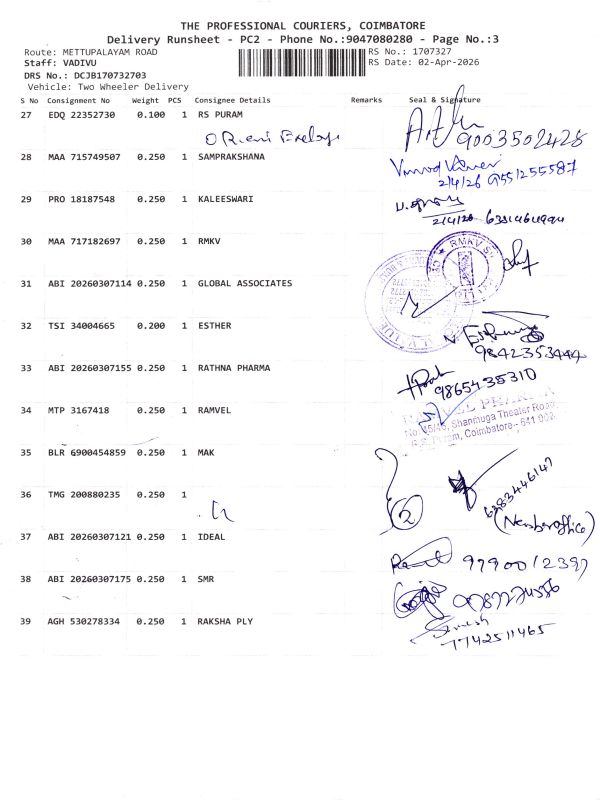 THE PROFESSIONAL COURIERS, COIMBATORE
Delivery Runsheet - PC2 - Phone No.:9047080280 - Page No.:3
Route: METTUPALAYAM ROAD RS No.: 1707327
Staff: VADIVU RS Date: 02-Apr-2026
DRS No.: DCJB170732703
Vehicle: Two Wheeler Delivery
S No Consignment No Weight PCS Consignee Details Remarks Seal & Signature
27 EDQ 22352730 0.100 1 RS PURAM
9003502428
28 MAA 715749507 0.250 1 SAMPRAKSHANA
2/4/26 9551255587
29 PRO 18187548 0.250 1 KALEESWARI
2/4/26
30 MAA 717182697 0.250 1 RMKV
RMKV
31 ABI 20260307114 0.250 1 GLOBAL ASSOCIATES
32 TSI 34004665 0.200 1 ESTHER
9842353444
33 ABI 20260307155 0.250 1 RATHNA PHARMA
9865435310
34 MTP 3167418 0.250 1 RAMVEL
Shanmuga Theater Road
R.S. Puram, Coimbatore - 641 002.
35 BLR 6900454859 0.250 1 MAK
6383446147
36 TMG 200880235 0.250 1
2
37 ABI 20260307121 0.250 1 IDEAL
9790012397
38 ABI 20260307175 0.250 1 SMR
39 AGH 530278334 0.250 1 RAKSHA PLY
7742511465